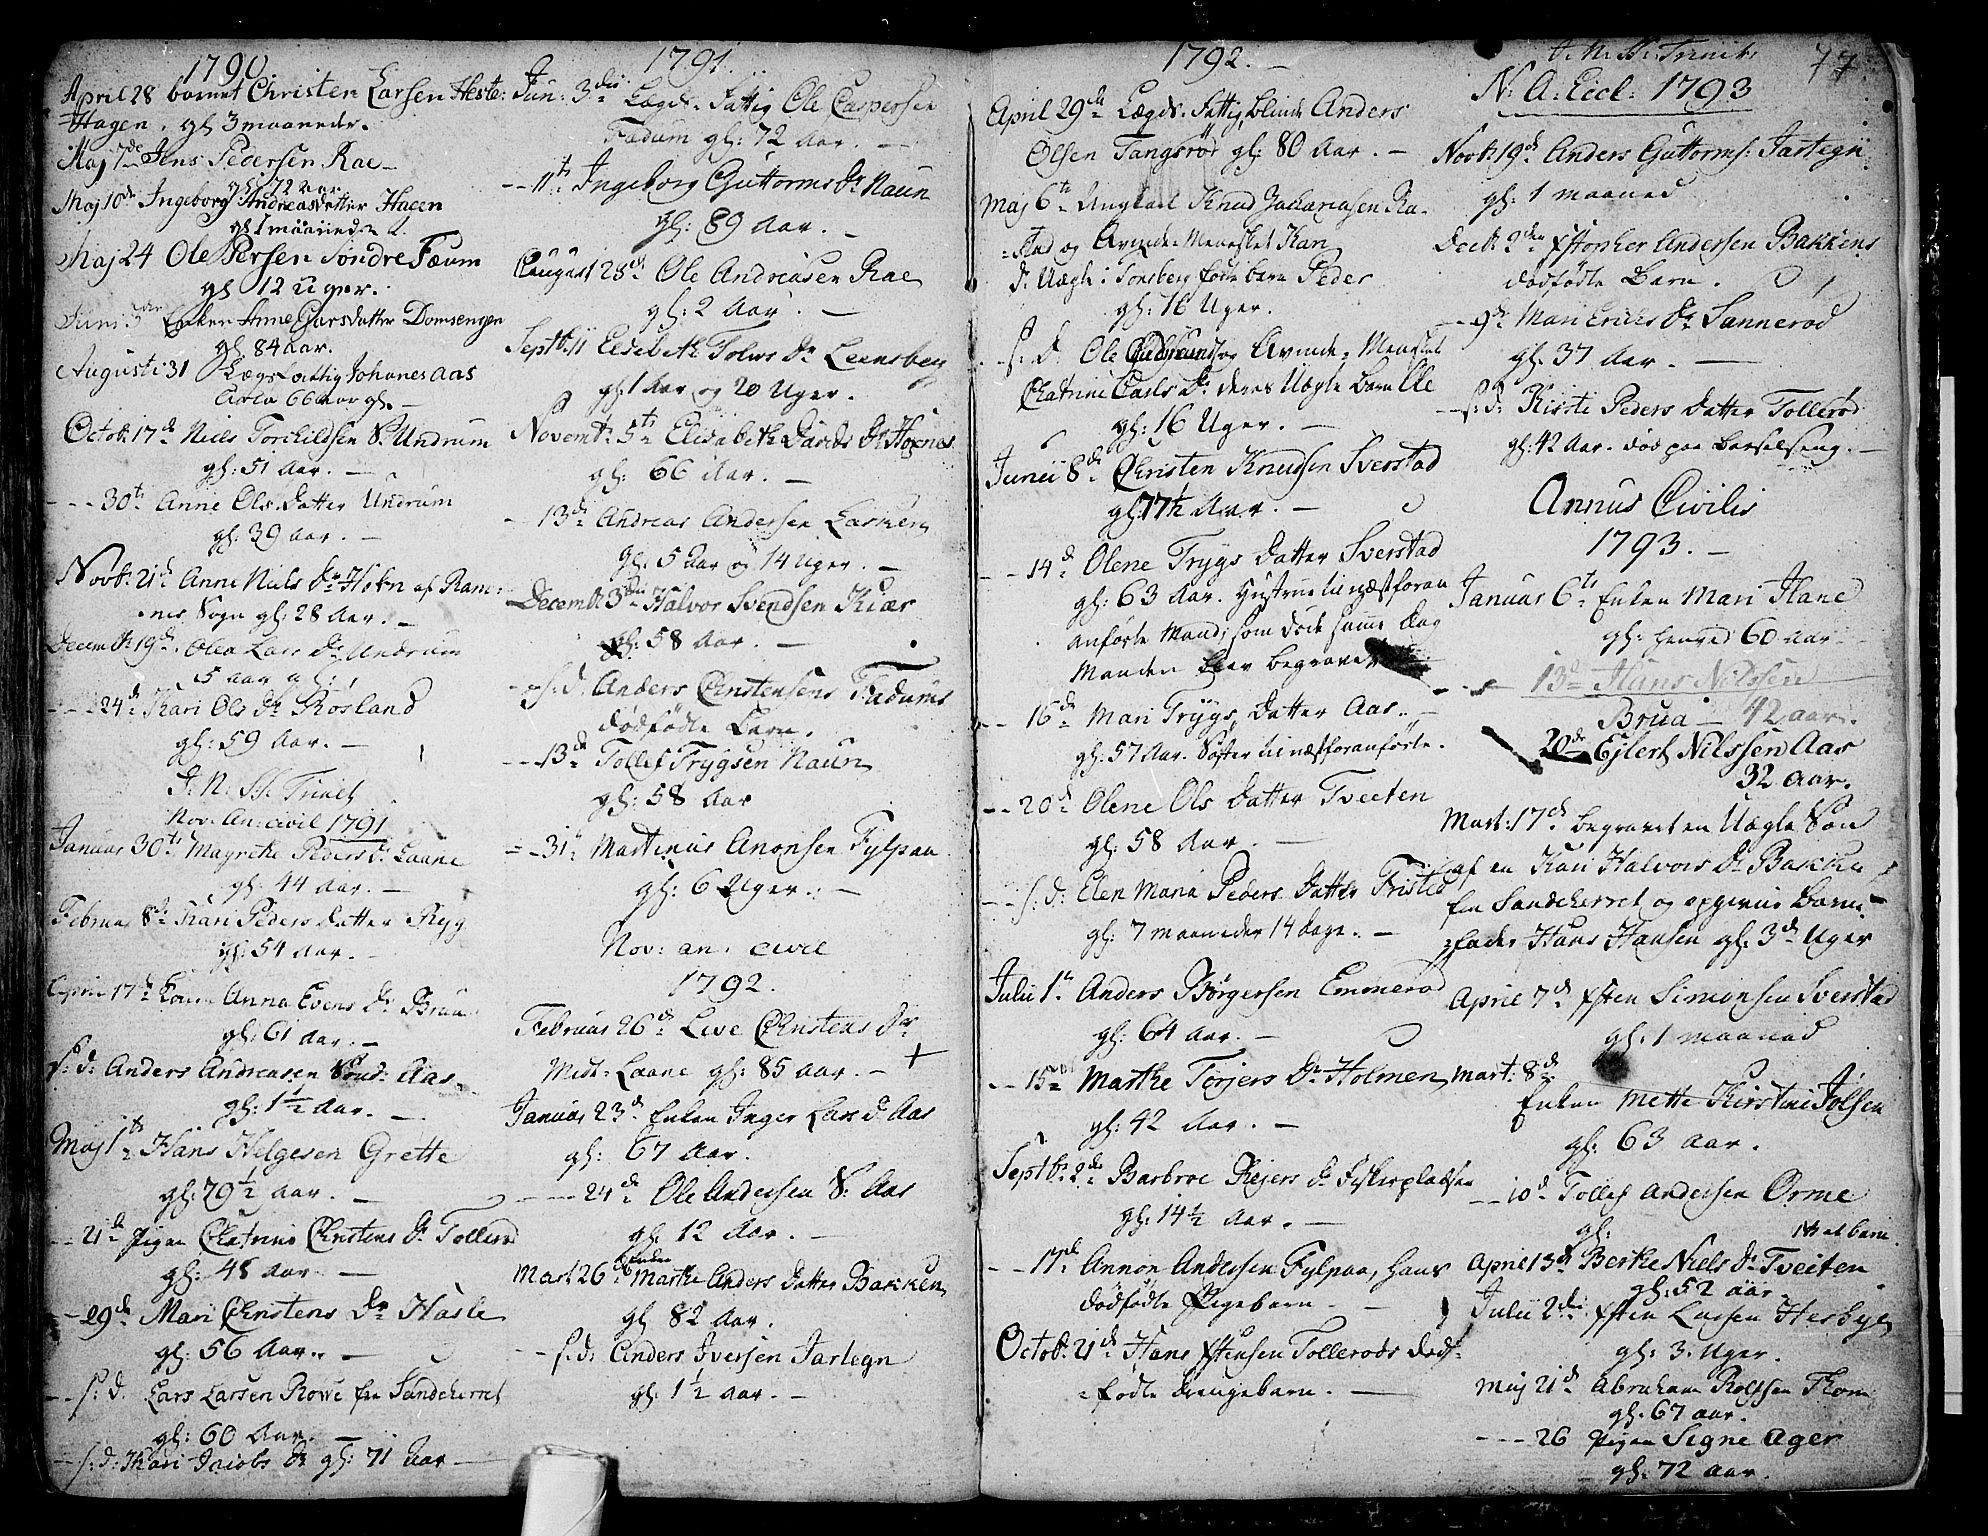 1790
April 28 barnet Christen Larsen Heste:
Hagen. gl. 3 maaneder.
Maj 7de Jens Pedersen Rae
gl. 72 aar
Maj 10de Ingeborg Andreasdatter Hagen
gl. 1 maaned
Maj 24 Ole Persen Søndre Fæum
gl. 12 uger.
Enken Anne Garsdatter Domsengen
gl. 84 aar.
Augusti 31 Lægs Lattig Johanes Aas
66 aar gl. –
Octob: 17de Niels Torchildsen S. Undrum
gl: 51 Aar. –
- - - 30te Anne Ols Datter Undrum
gl: 39 Aar. –
Novb: 21de Anne Niels Dr. Hotn af Ram:
nes Sogn gl: 28 Aar. –
Decemb: 19de. Olea Lars Dr. Undrum
5 aar gl:
- - - 24de Kari Ols Dr Røsland
gl: 59 Aar. –
J. N. SS. Trinit
Nov: An: civil 1791
Januar 30te Magrethe Peders Dr. Laane
gl: 44 Aar. –
Februar 8de Kari Peders Datter Ryg
gl: 54 Aar. –
April 17de Anna Evens Dr. Bruu
gl: 61 Aar. –
S: d: Anders Andreasen Sond: Aas
gl: 1½ Aar. –
Maj 1te Hans Helgesen Grette
gl: 79½ Aar. –
- - 21de Pigen Chatrine Christens Dr. Tollerød
gl: 48 Aar –
- - 29de Mari Christens Dr Hasle
gl: 56 Aar. –
- - s: d. Lars Larsen Rowe fra Sandeherret
gl: 60 Aar. –
- s: d: Kari Jacobs Dr gl: 71 Aar –
1791.
Jun: 3die Lægds-Fattig Ole Caspersen
Fadum gl: 72 Aar. –
- - 11te Ingeborg Guttorms Dr. Naun
gl: 89 Aar. –
August 28de Ole Andreasen Rae
gl: 2 Aar. –
Septb: 11 Elisabeth Tolws Dr. Leensberg
gl: 1 Aar og 20 Uger.
Novemb: 5te Elisabeth Davids Dr. Hornes
gl: 66 Aar. –
- 13de Andreas Andersen Løskien
gl: 5 Aar og 14 Uger. –
Decemb: 3die Halvor Svendsen Kiær
gl: 58 Aar. –
- s: d: Anders Christensens Fadums
dødfødte Barn.
- - 13de Tollef Trygsen Naun
gl: 58 Aar
- - 31te Martinus Anonsen Fylpaa
gl: 6 Uger. –
Nov: an: civil
1792.
Februar 26de Live Christens Dr
Midt-Laane gl: 85 Aar. – +
Januar 23de Enken Inger Lars Dr Aas
gl: 67 Aar.
- - - 24de Ole Andersen S: Aas
gl: 12 Aar. –
Enken
Mart 26 Marthe Anders Datter Bakken
gl 82 Aar.
- - s: d: Anders Iversen Jartegn
gl: 1½ Aar. –
1792. –
April 29de Lægds-Fattig, blinde Anders
Olsen Tangsrød gl: 80 Aar. –
Maj 6te Ungkarl Knud Zachariasen Ra-
=stad og Qvinde-Mennesket Kari
gl: 16 Uger.
- s: d. Ole Gudmunds og Qvinde-Mennesket
Chatrine Carls Dr. deres Uægte Barn Ole
gl: 16 Uger. –
Junii 8de Christen Knudsen Sverstad
gl: 77½ Aar. –
- - 14de Olene Trygs Datter Sverstad
gl: 63 Aar. Hustrue til næstforan
anførte Mand, som døde samme Dag
Manden blev begravet
- - 16de Mari Trygs Datter Aas. –
gl: 57 Aar. Søster til næstforanførte.
- - 20de Olene Ols Datter Tveeten
gl: 58 Aar. –
- - s: d: Elen Maria Peders Datter Tristed
gl: 7 maaneder 14 dage. –
Julii 1te Anders Børgersen Emmerød
gl: 64 Aar. –
- - 15de Marthe Torjers Dr. Holmen
gl: 42 Aar. –
Septbr: 2de Barbroe Rejers Dr Fiskerpladsen
gl: 14½ Aar. –
- - 17de Annon Andersen Fylpaa, hans
dødfødte Pigebarn –
Octob: 21de Hans Ystensen Tollerøds død-
=fødte drengebarn. –
77.
J. N. SS. Trinit:
N: A: Eccl: 1793
Novb: 19de Anders Guttorms: Jartegn
gl: 1 maaned
Decb: 2den Xstopher Andersen Bakkens
dødfødte Barn.
- - 9de Mari Erichs Dr. Sannerød
gl: 37 Aar. –
- s: d: Kirsti Peders Datter Tollerød
gl: 42 Aar. død paa Barselseng. –
Annus Civilis
1793. –
Januar 6te Enken Mari Hane
gl: henved 60 aar
13de Hans Nilssen
Brua – 42 aar.
20de Ejlert Nilssen Aas
32 aar.
Mart: 17de begravet en Uægte Søn
af en Kari Halvors Dr. Bakke
fra Sandeherret og opgivne Barne-
=fader Hans Hansen gl: 3de Uger
April 7de Ysten Simonsen Sverstad
gl: 1 maaned
Mart: 8de
Enken Mette Kirstine Jølsen
gl: 63 aar.
- - 10de Tollef Andersen Orme
gl: 1et barn.
April 13de Berthe Niels Dr. Tveiten
gl: 52 aar.
Julii 2de Ysten Larsen Hesbye
gl: 3. Uger.
Maj 21de Abraham Rolfsen Thom
gl. 67 aar.
- - - 26 Pigen Signe Ager
gl. 72 aar.